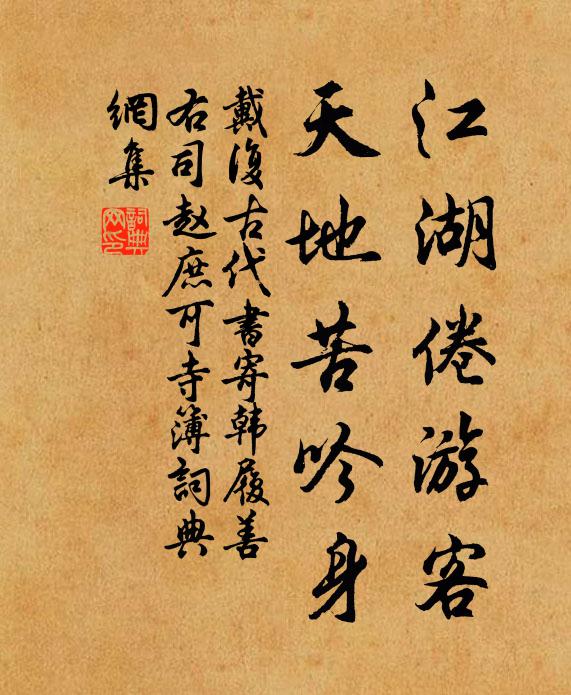 江湖倦游客
天地苦吟身
戴復古代書寄韩履善
右司赵庶可寺簿詞典
網集
詞典网印